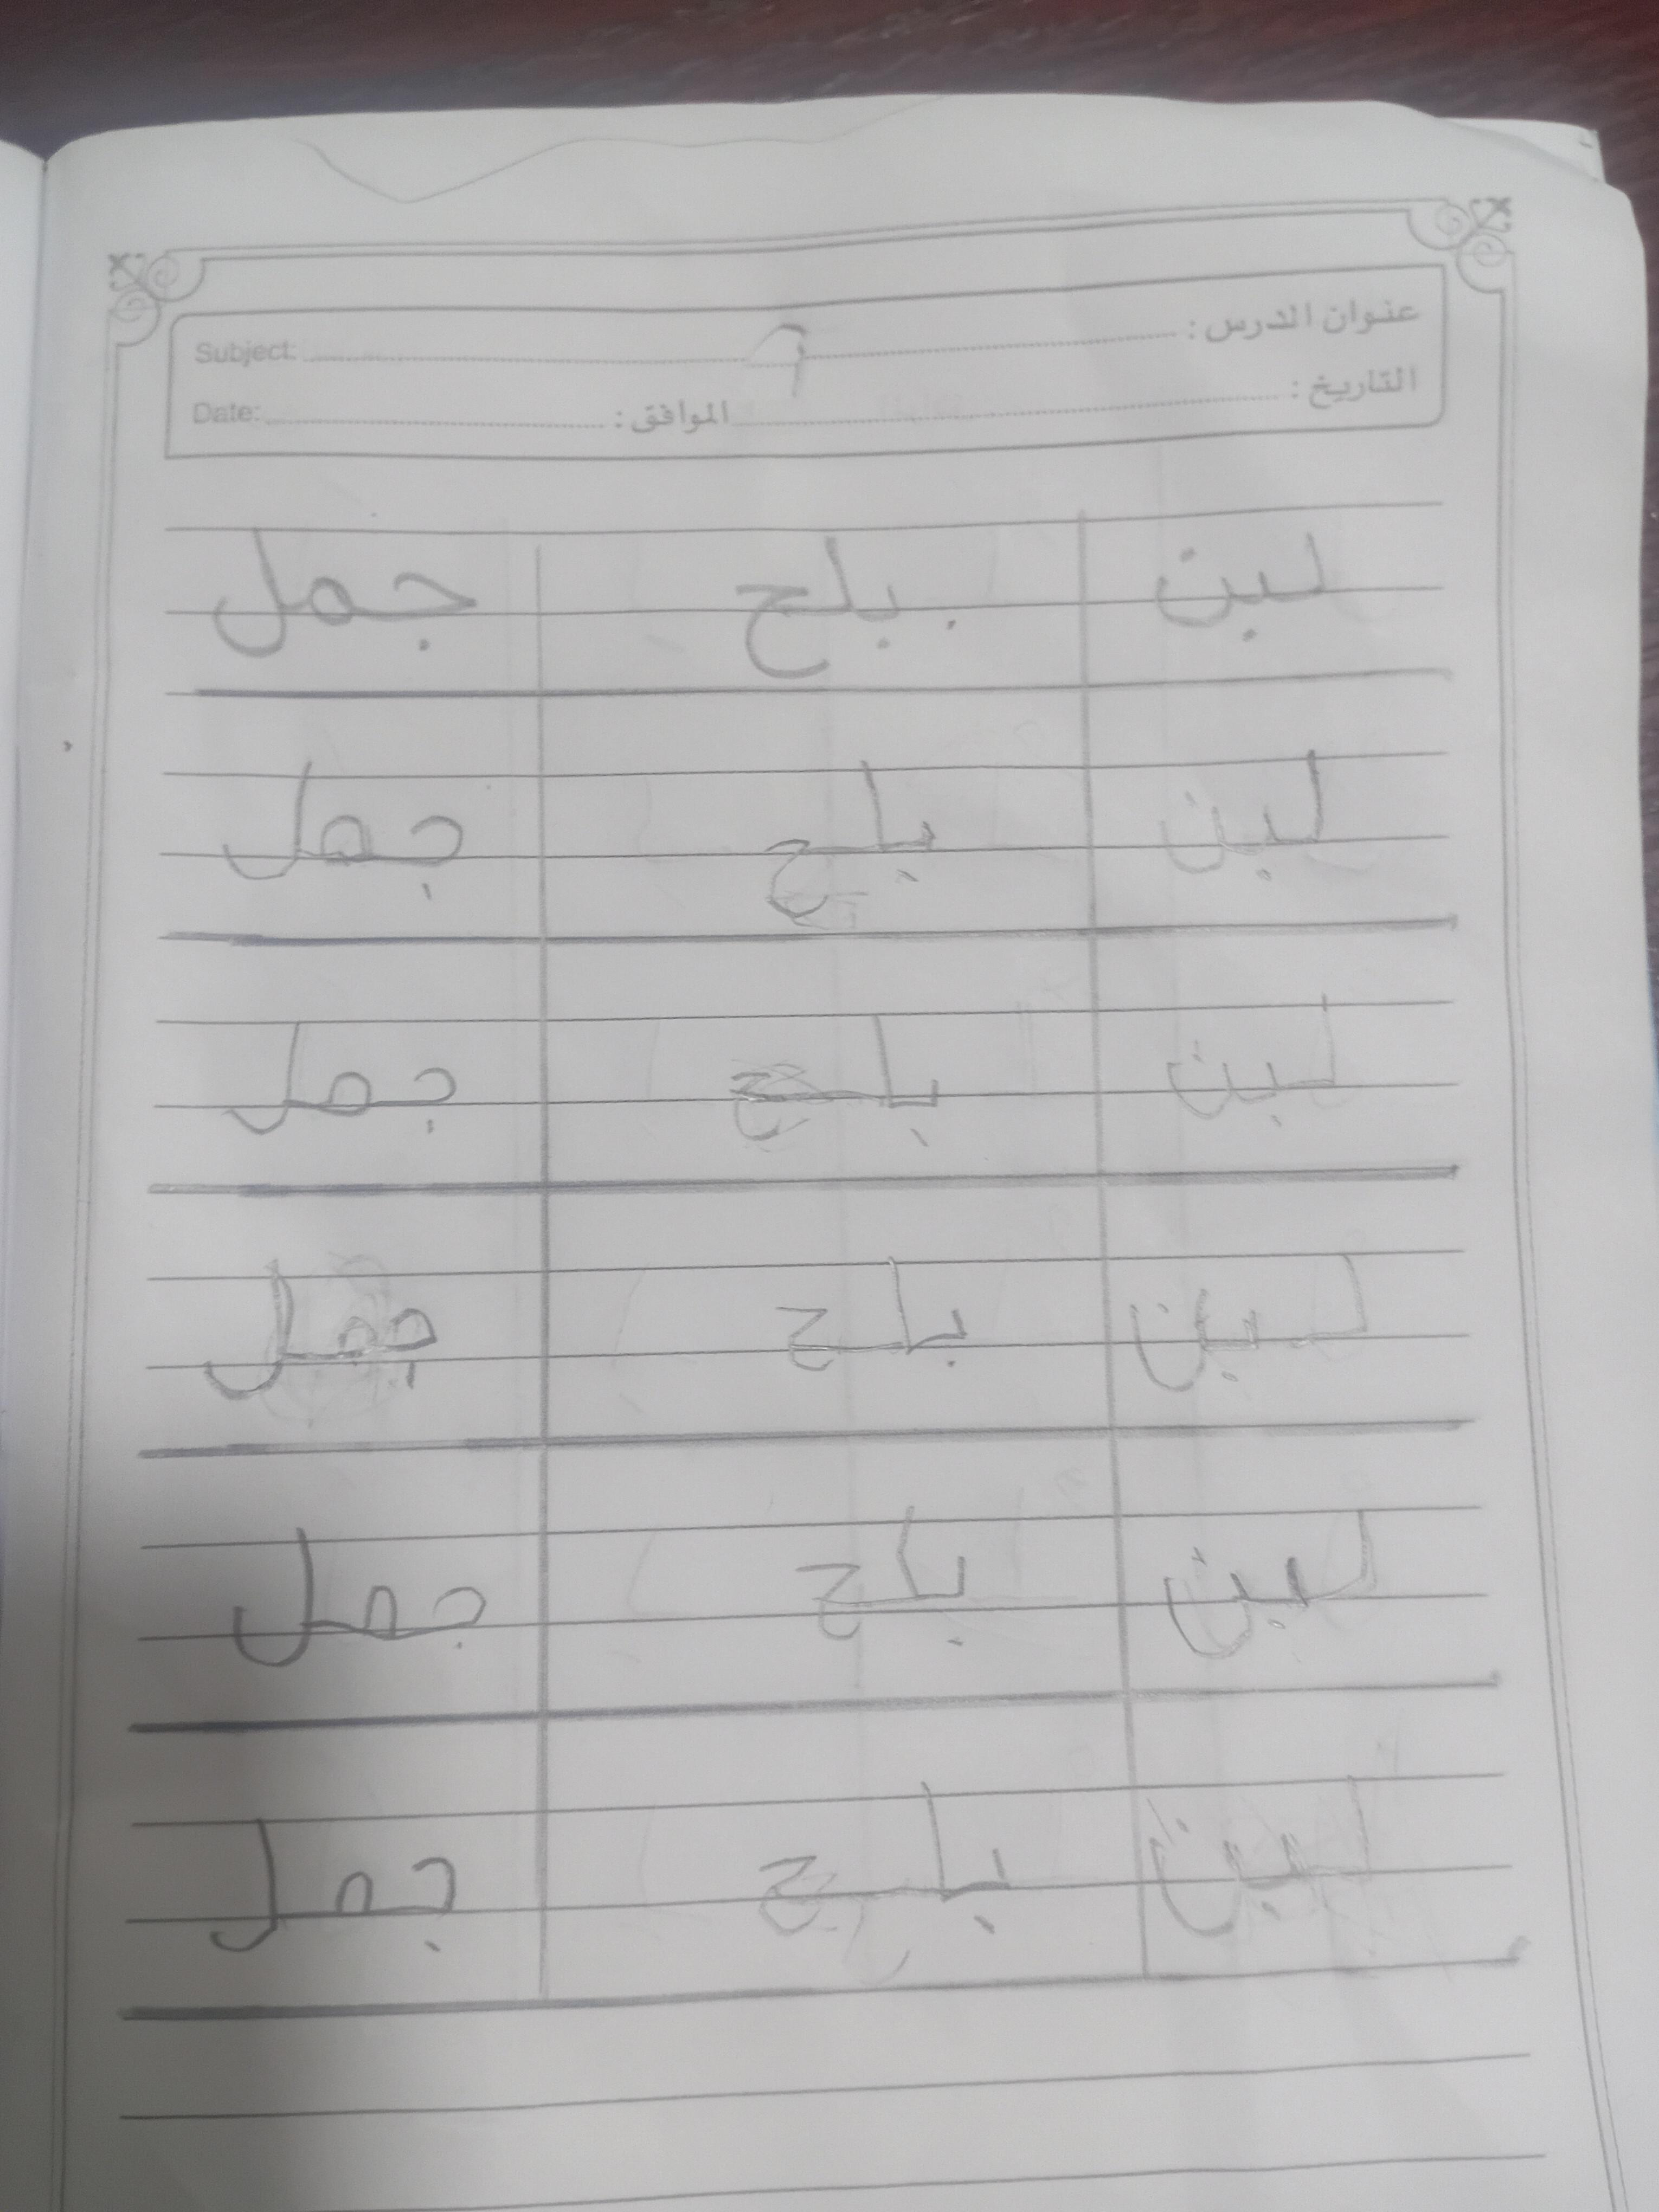 عنوان الدرس : Subject:
التاريخ : الموافق : Date:
لبن بلح جمل
لبن بلح جمل
لبن بلح جمل
لبن بلح جمل
لبن بلح جمل
لبن بلح جمل